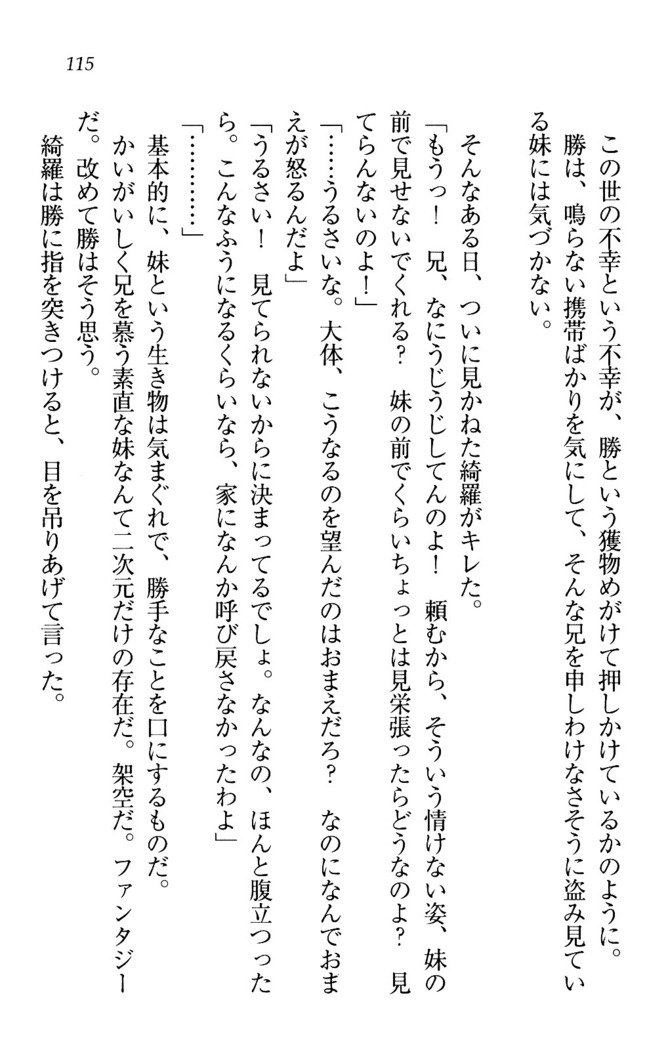 115
この世の不幸という不幸が、勝という獲物めがけて押しかけているかのように。
勝は、鳴らない携帯ばかりを気にして、そんな兄を申しわけなさそうに盗み見てい
る妹には気づかない。
そんなある日、ついに見かねた綺羅がキレた。
「もうっ！　兄、なにうじうじしてんのよ！　頼むから、そういう情けない姿、妹の
前で見せないでくれる？　妹の前でくらいちょっとは見栄張ったらどうなのよ？　見
てらんないのよ！」
「……うるさいな。大体、こうなるのを望んだのはおまえだろ？　なのになんでおま
えが怒るんだよ」
「うるさい！　見てられないからに決まってるでしょ。なんなの、ほんと腹立つった
ら。こんなふうになるくらいなら、家になんか呼び戻さなかったわよ」
「…………」
基本的に、妹という生き物は気まぐれで、勝手なことを口にするものだ。
かいがいしく兄を慕う素直な妹なんて二次元だけの存在だ。架空だ。ファンタジー
だ。改めて勝はそう思う。
綺羅は勝に指を突きつけると、目を吊りあげて言った。